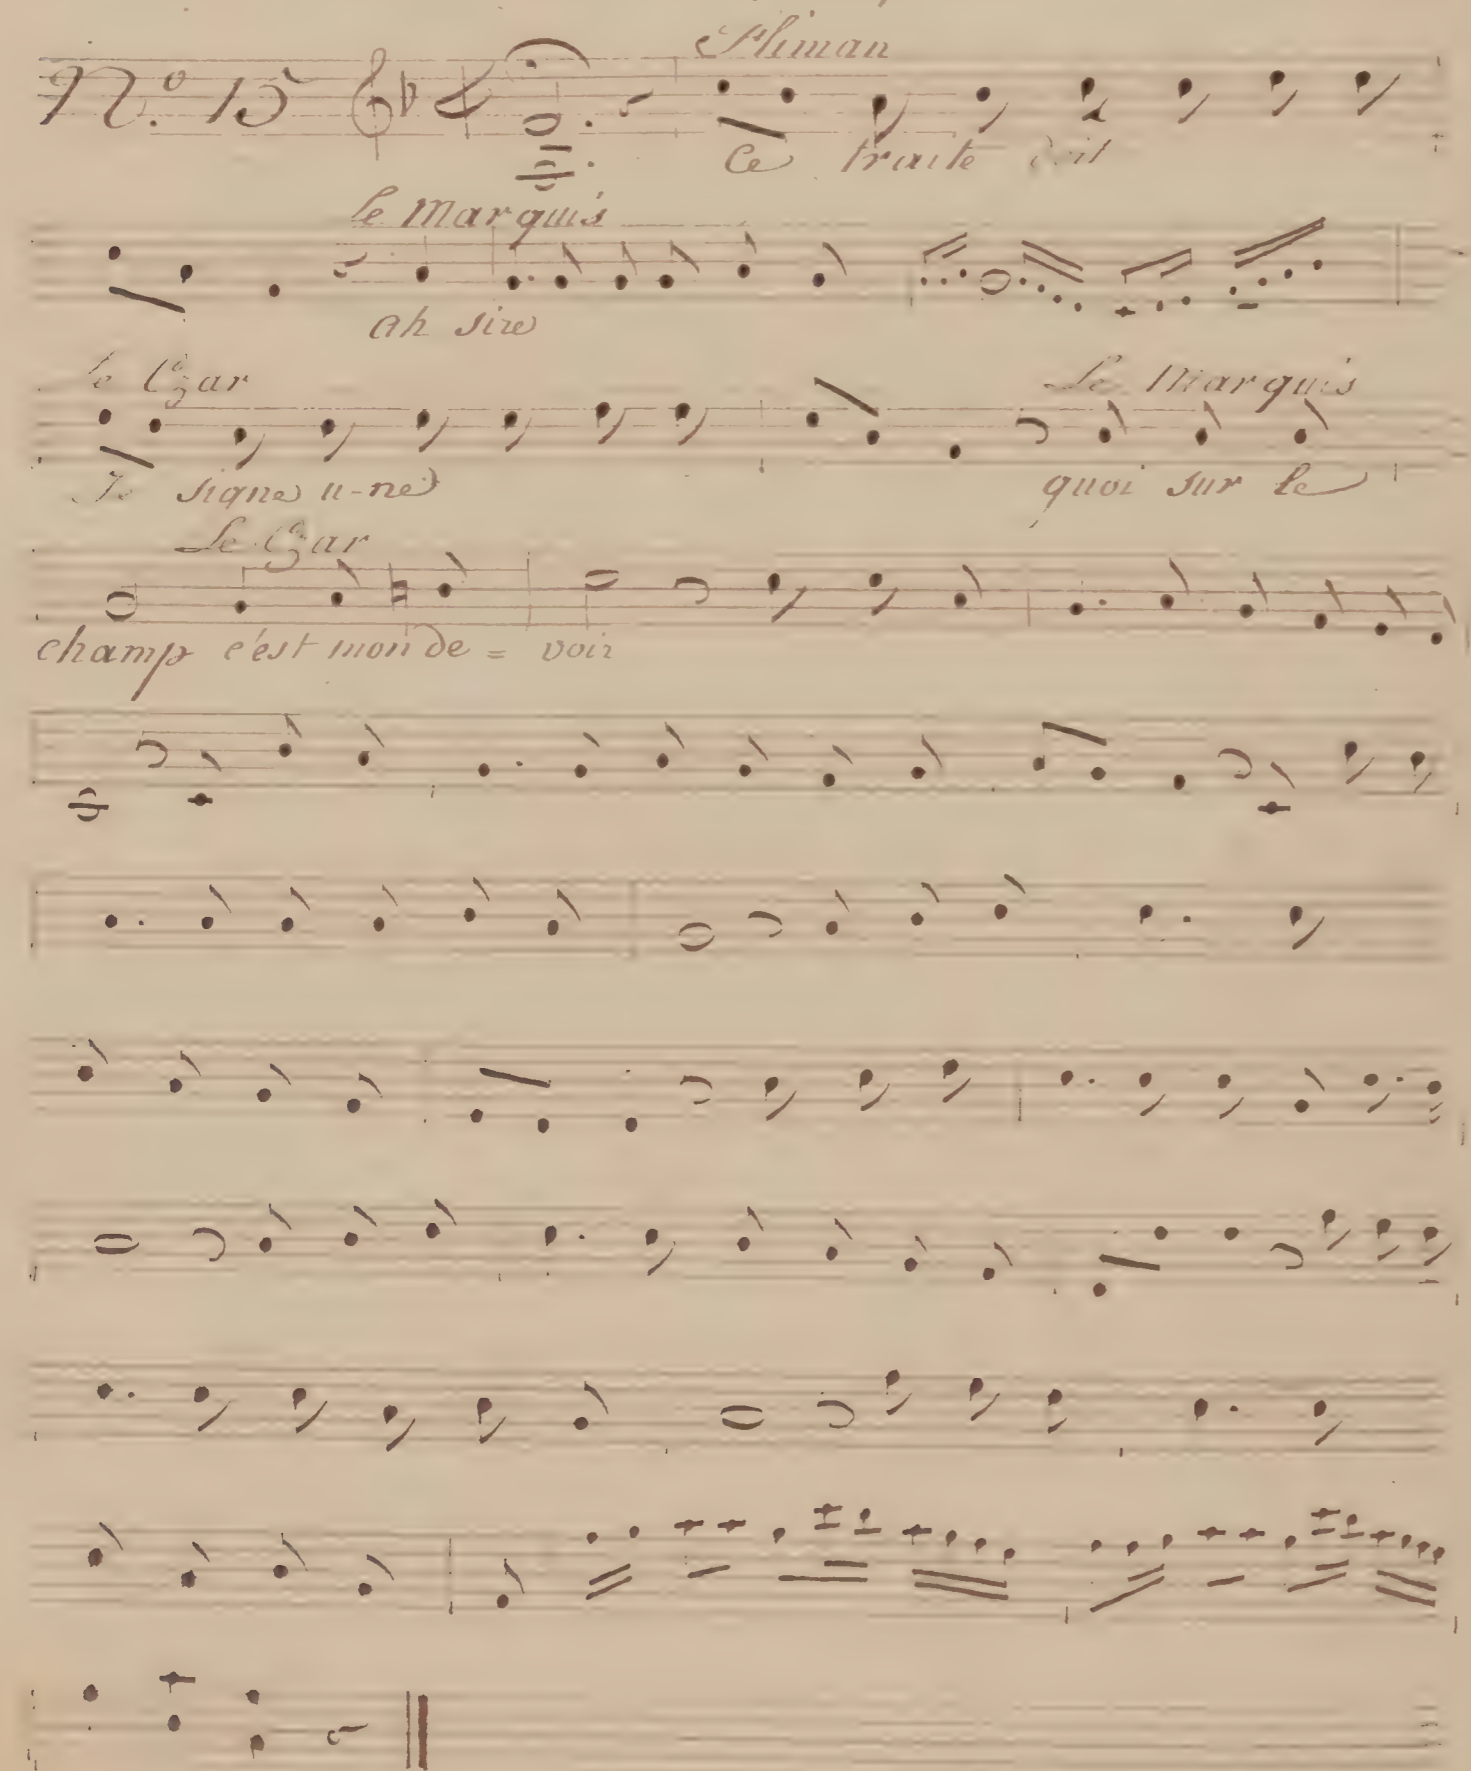 N.º 15 Sliman
Ce traité doit
le Marquis
ah sire
le Czar Le Marquis
Je signe u-ne quoi sur le
Le Czar
champ c'est mon de = voir